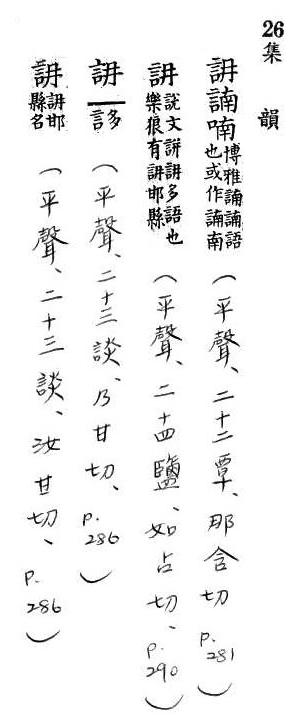 26集 韻
詽諵喃博雅諵諵語也或作諵南（平聲、二十二覃、那含切 p.281）
詽說文詽詽多語也樂浪有詽邯縣（平聲、二十四鹽、如占切、p.290）
詽多言（平聲、二十三談、乃甘切、p.286）
詽詽邯縣名（平聲、二十三談、汝甘切、p.286）